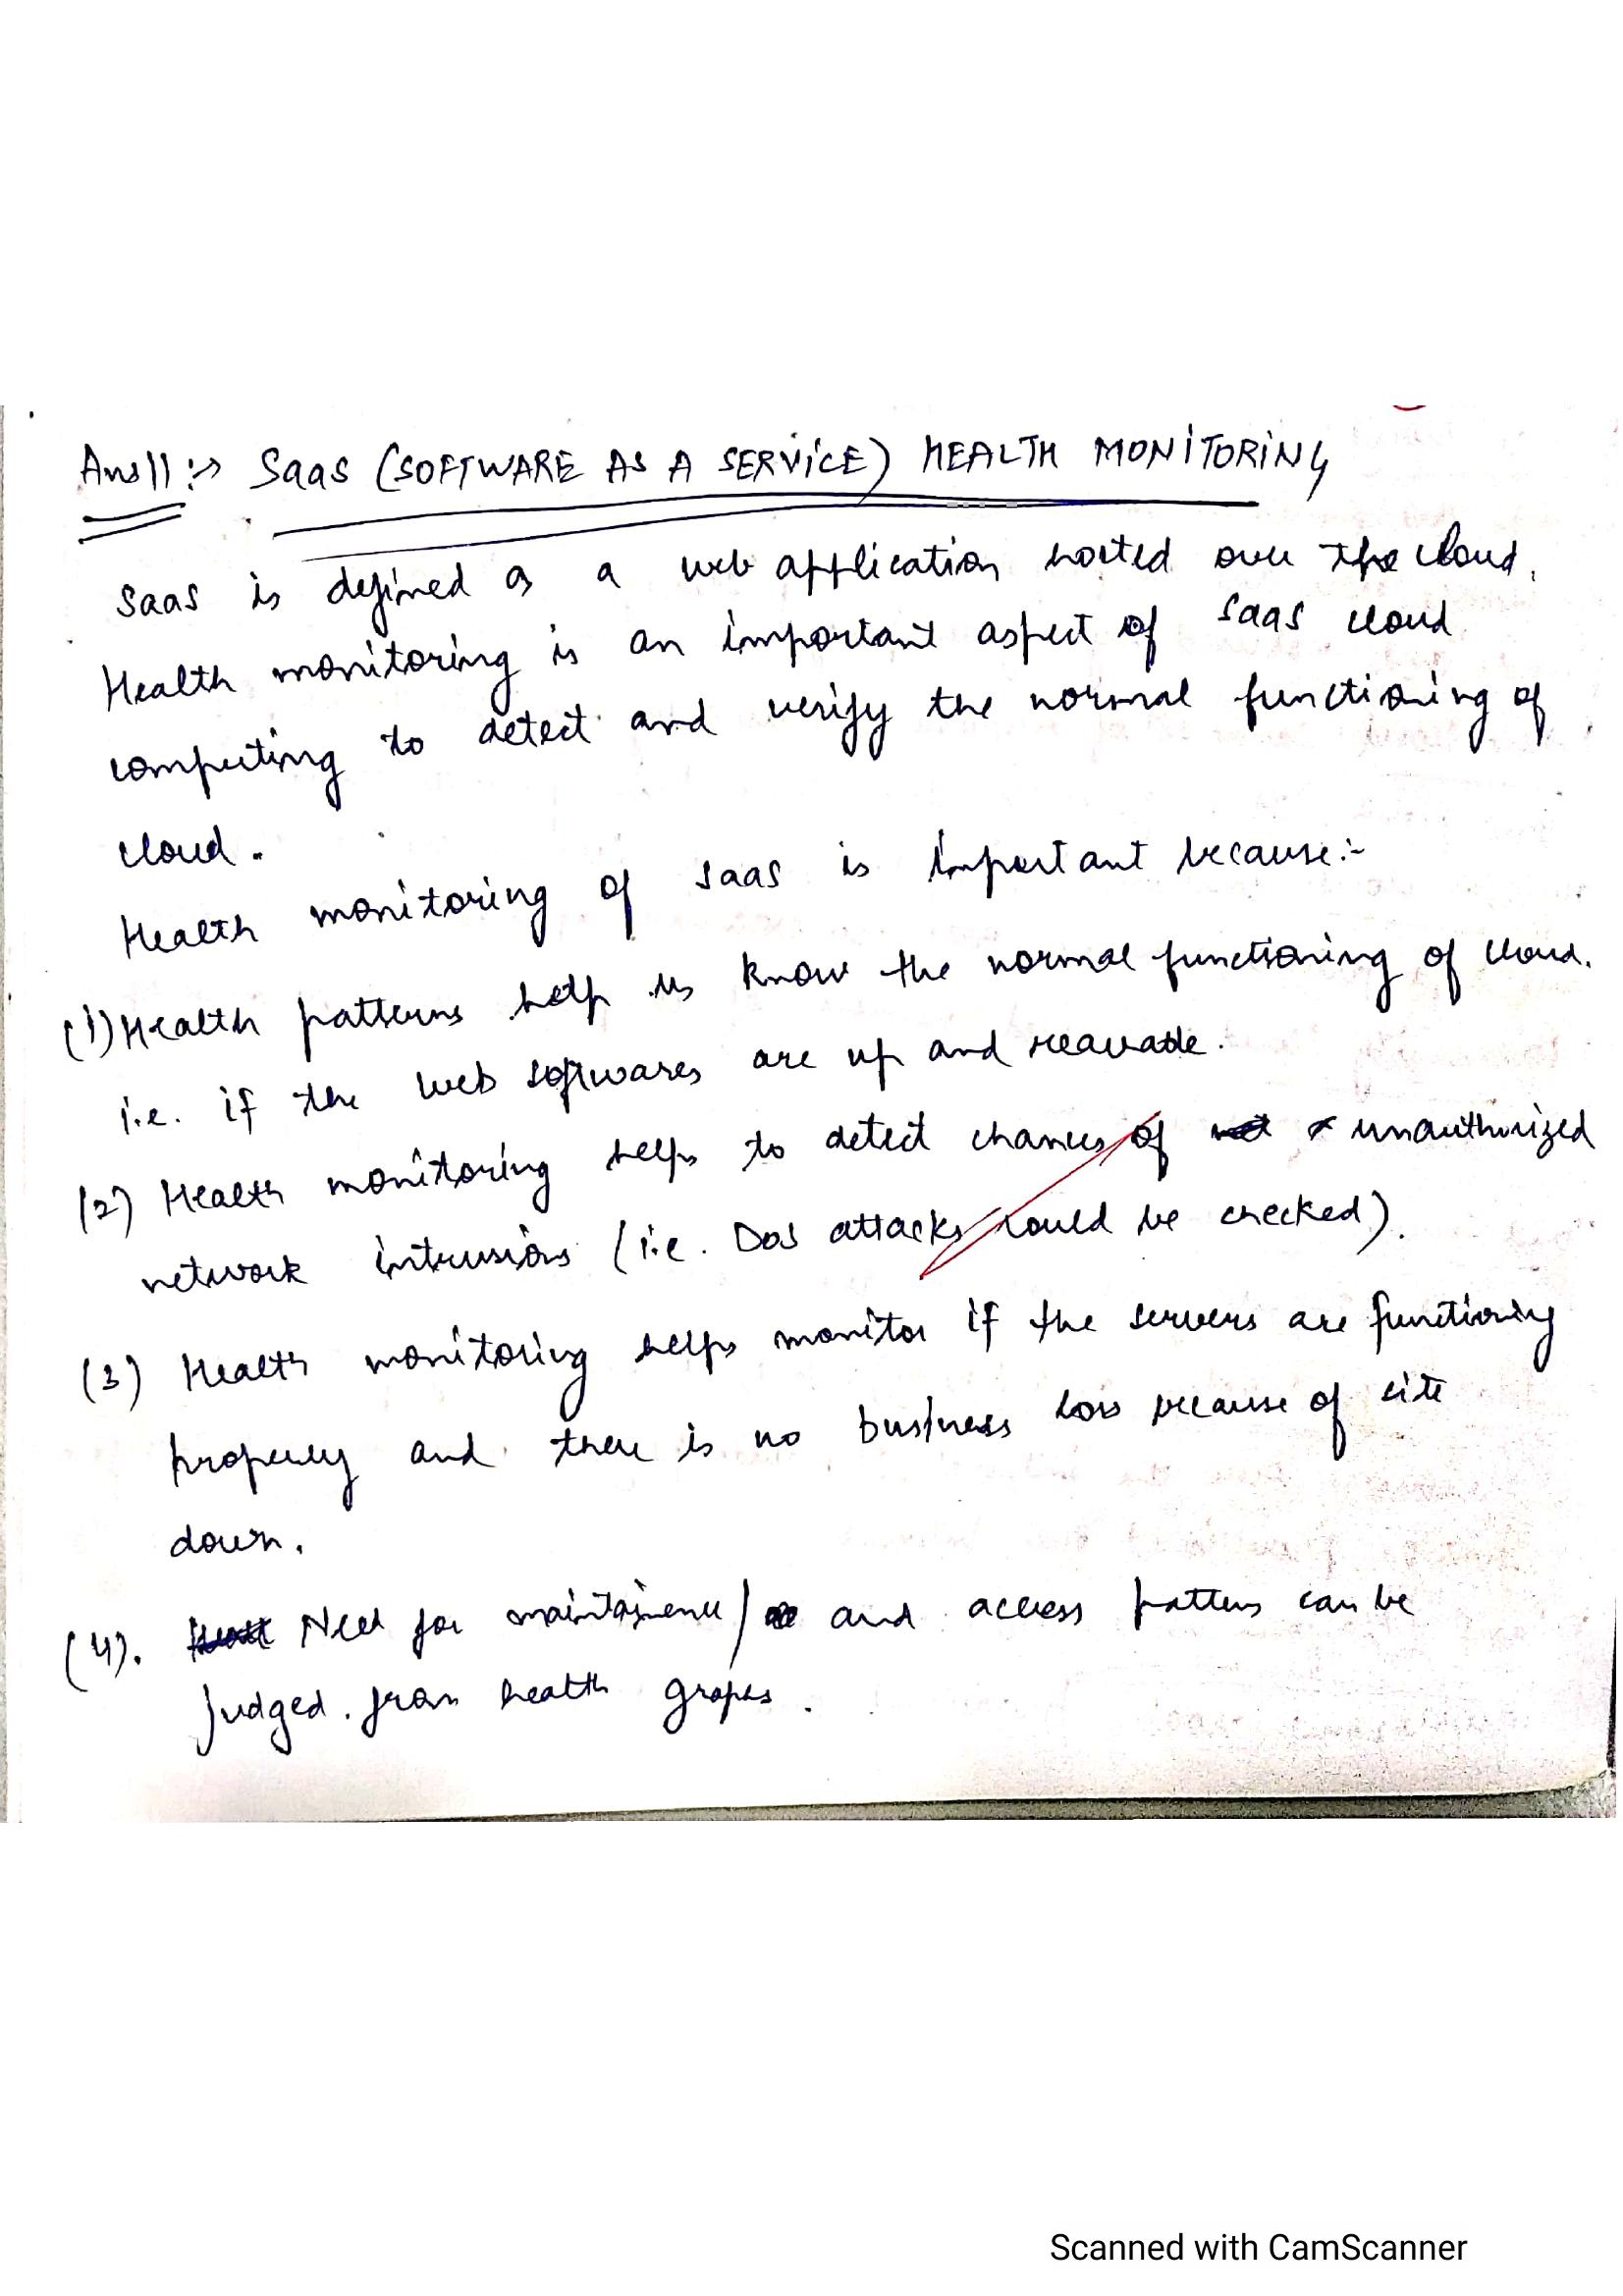 Ans11:→ SaaS (SOFTWARE AS A SERVICE) HEALTH MONITORING
SaaS is defined as a web application hosted over the cloud.
Health monitoring is an important aspect of SaaS cloud
computing to detect and verify the normal functioning of
cloud.
Health monitoring of SaaS is important because:-
(1) Health patterns help us know the normal functioning of cloud.
i.e. if the web softwares are up and reachable.
(2) Health monitoring helps to detect chances of unauthorized
network intrusions (i.e. DoS attacks could be checked).
(3) Health monitoring helps monitor if the servers are functioning
properly and there is no business loss because of site
down.
(4). Need for maintainence / and access pattern can be
judged from health graphs.
Scanned with CamScanner